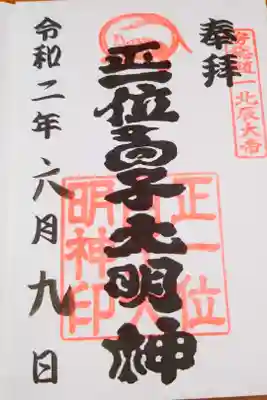 奉拝
北辰大帝
正一位高子大明神
正一位
明神印
令和二年六月九日